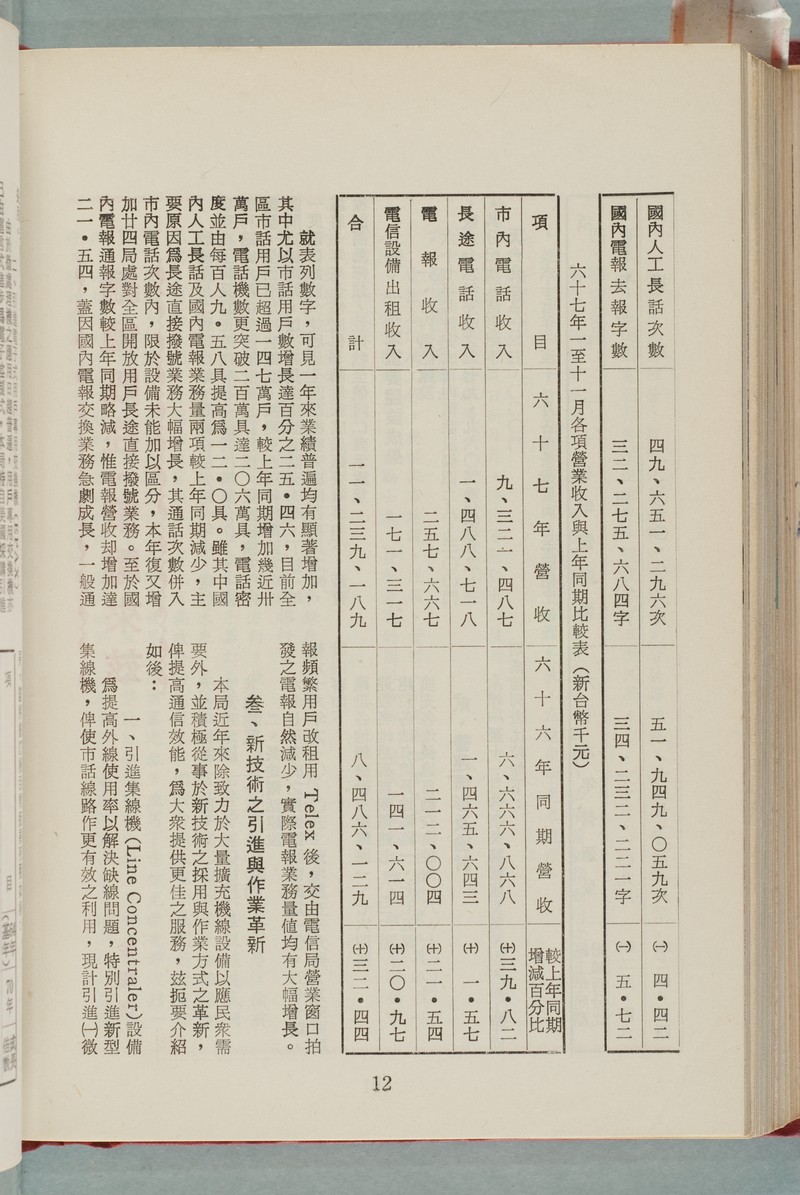 國內人工長話次數　四九、六五一、二九六次　五一、九四九、〇五九次　㈠　四•四二
國內電報去報字數　三二、二七五、六八四字　三四、二三二、二二一字　㈠　五•七二
六十七年一至十一月各項營業收入與上年同期比較表（新台幣千元）
項目　六十七年營收　六十六年同期營收　較上年同期增減百分比
市內電話收入　九、三二一、四八七　六、六六六、八六八　㈩三九•八二
長途電話收入　一、四八八、七一八　一、四六五、六四三　㈩　一•五七
電報收入　二五七、六六七　二一二、〇〇四　㈩二一•五四
電信設備出租收入　一七一、三一七　一四一、六一四　㈩二〇•九七
合計　一一、二三九、一八九　八、四八六、一二九　㈩三二•四四
就表列數字，可見一年來業績普遍均有顯著增加，
其中尤以市話用戶數增長達百分之二五•四六，目前全
區市話用戶已超過一四七萬戶，較上年同期增加幾近卅
萬戶，電話機數更突破二百萬具達二〇六萬具，電話密
度並由每百人九•五八具提高爲一二•〇具。雖其中國
內人工長話及國內電報業務量兩項較上年同期減少，主
要原因爲長途直接撥號業務大幅增長，其通話次數併入
市內電話次數內，限於設備未能加以區分，本年復又增
加廿四局處對全區開放用戶長途直接撥號業務。至於國
內電報通報字數較上年同期略減，惟電報營收却增加達
二一•五四，蓋因國內電報交換業務急劇成長，一般通
報頻繁用戶改租用 Telex 後，交由電信局營業窗口拍
發之電報自然減少，實際電報業務量値均有大幅增長。
叁、新技術之引進與作業革新
本局近年來除致力於大量擴充機線設備以應民衆需
要外，並積極從事於新技術之採用與作業方式之革新，
俾提高通信效能，爲大衆提供更佳之服務，玆扼要介紹
如後：
一、引進集線機 (Line Concentraler) 設備
爲提高外線使用率以解決缺線問題，特別引進新型
集線機，俾使市話線路作更有效之利用，現計引進㈠微
12